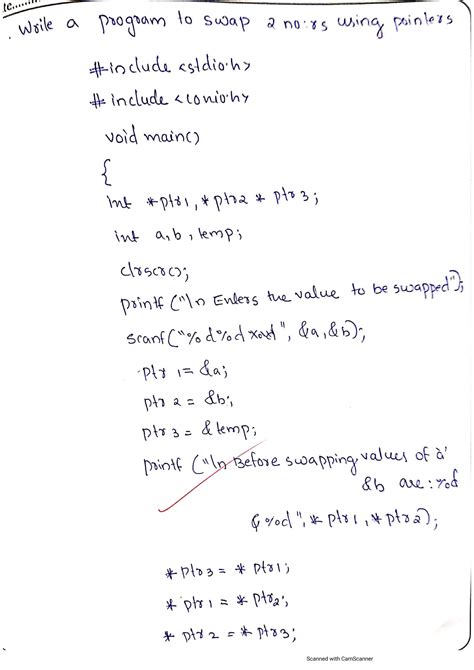 te.......
. Write a program to swap 2 no:rs using pointers
#include <stdio.h>
#include <conio.h>
void main()
{
int *ptr1, *ptr2 * ptr3;
int a, b, temp;
clrscr();
printf ("\n Enters the value to be swapped");
scanf("%d%d", &a, &b);
ptr 1 = &a;
ptr 2 = &b;
ptr 3 = & temp;
printf ("\n Before swapping values of a'
&b are : %d
& %d", * ptr1, * ptr2);
* ptr3 = * ptr1;
* ptr1 = * ptr2;
* ptr2 = * ptr3;
Scanned with CamScanner